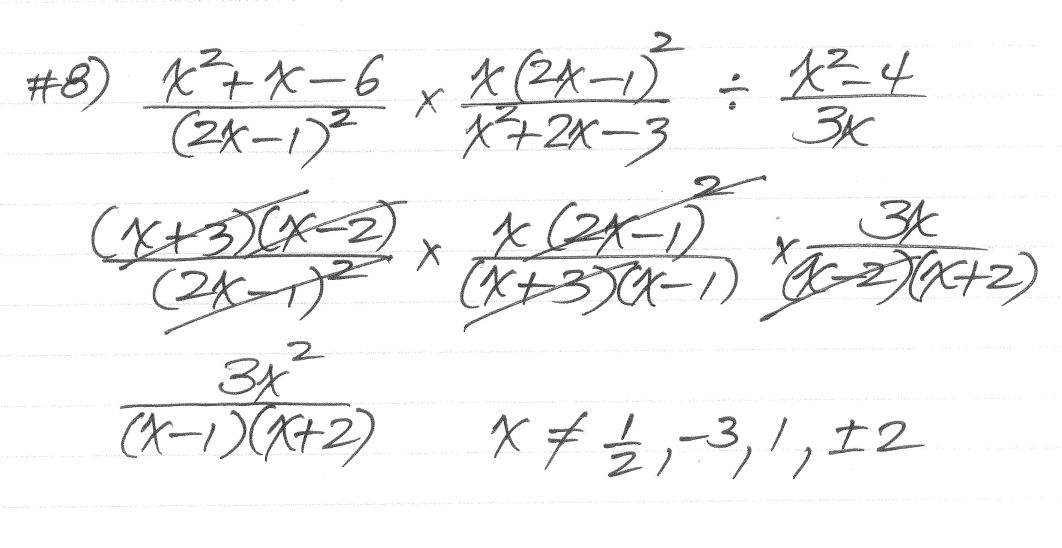 #8) (x²+x-6)/(2x-1)² × x(2x-1)²/(x²+2x-3) ÷ (x²-4)/3x
(x+3)(x-2)/(2x-1)² × x(2x-1)²/((x+3)(x-1)) × 3x/((x-2)(x+2))
3x²/((x-1)(x+2)) x ≠ 1/2, -3, 1, ±2